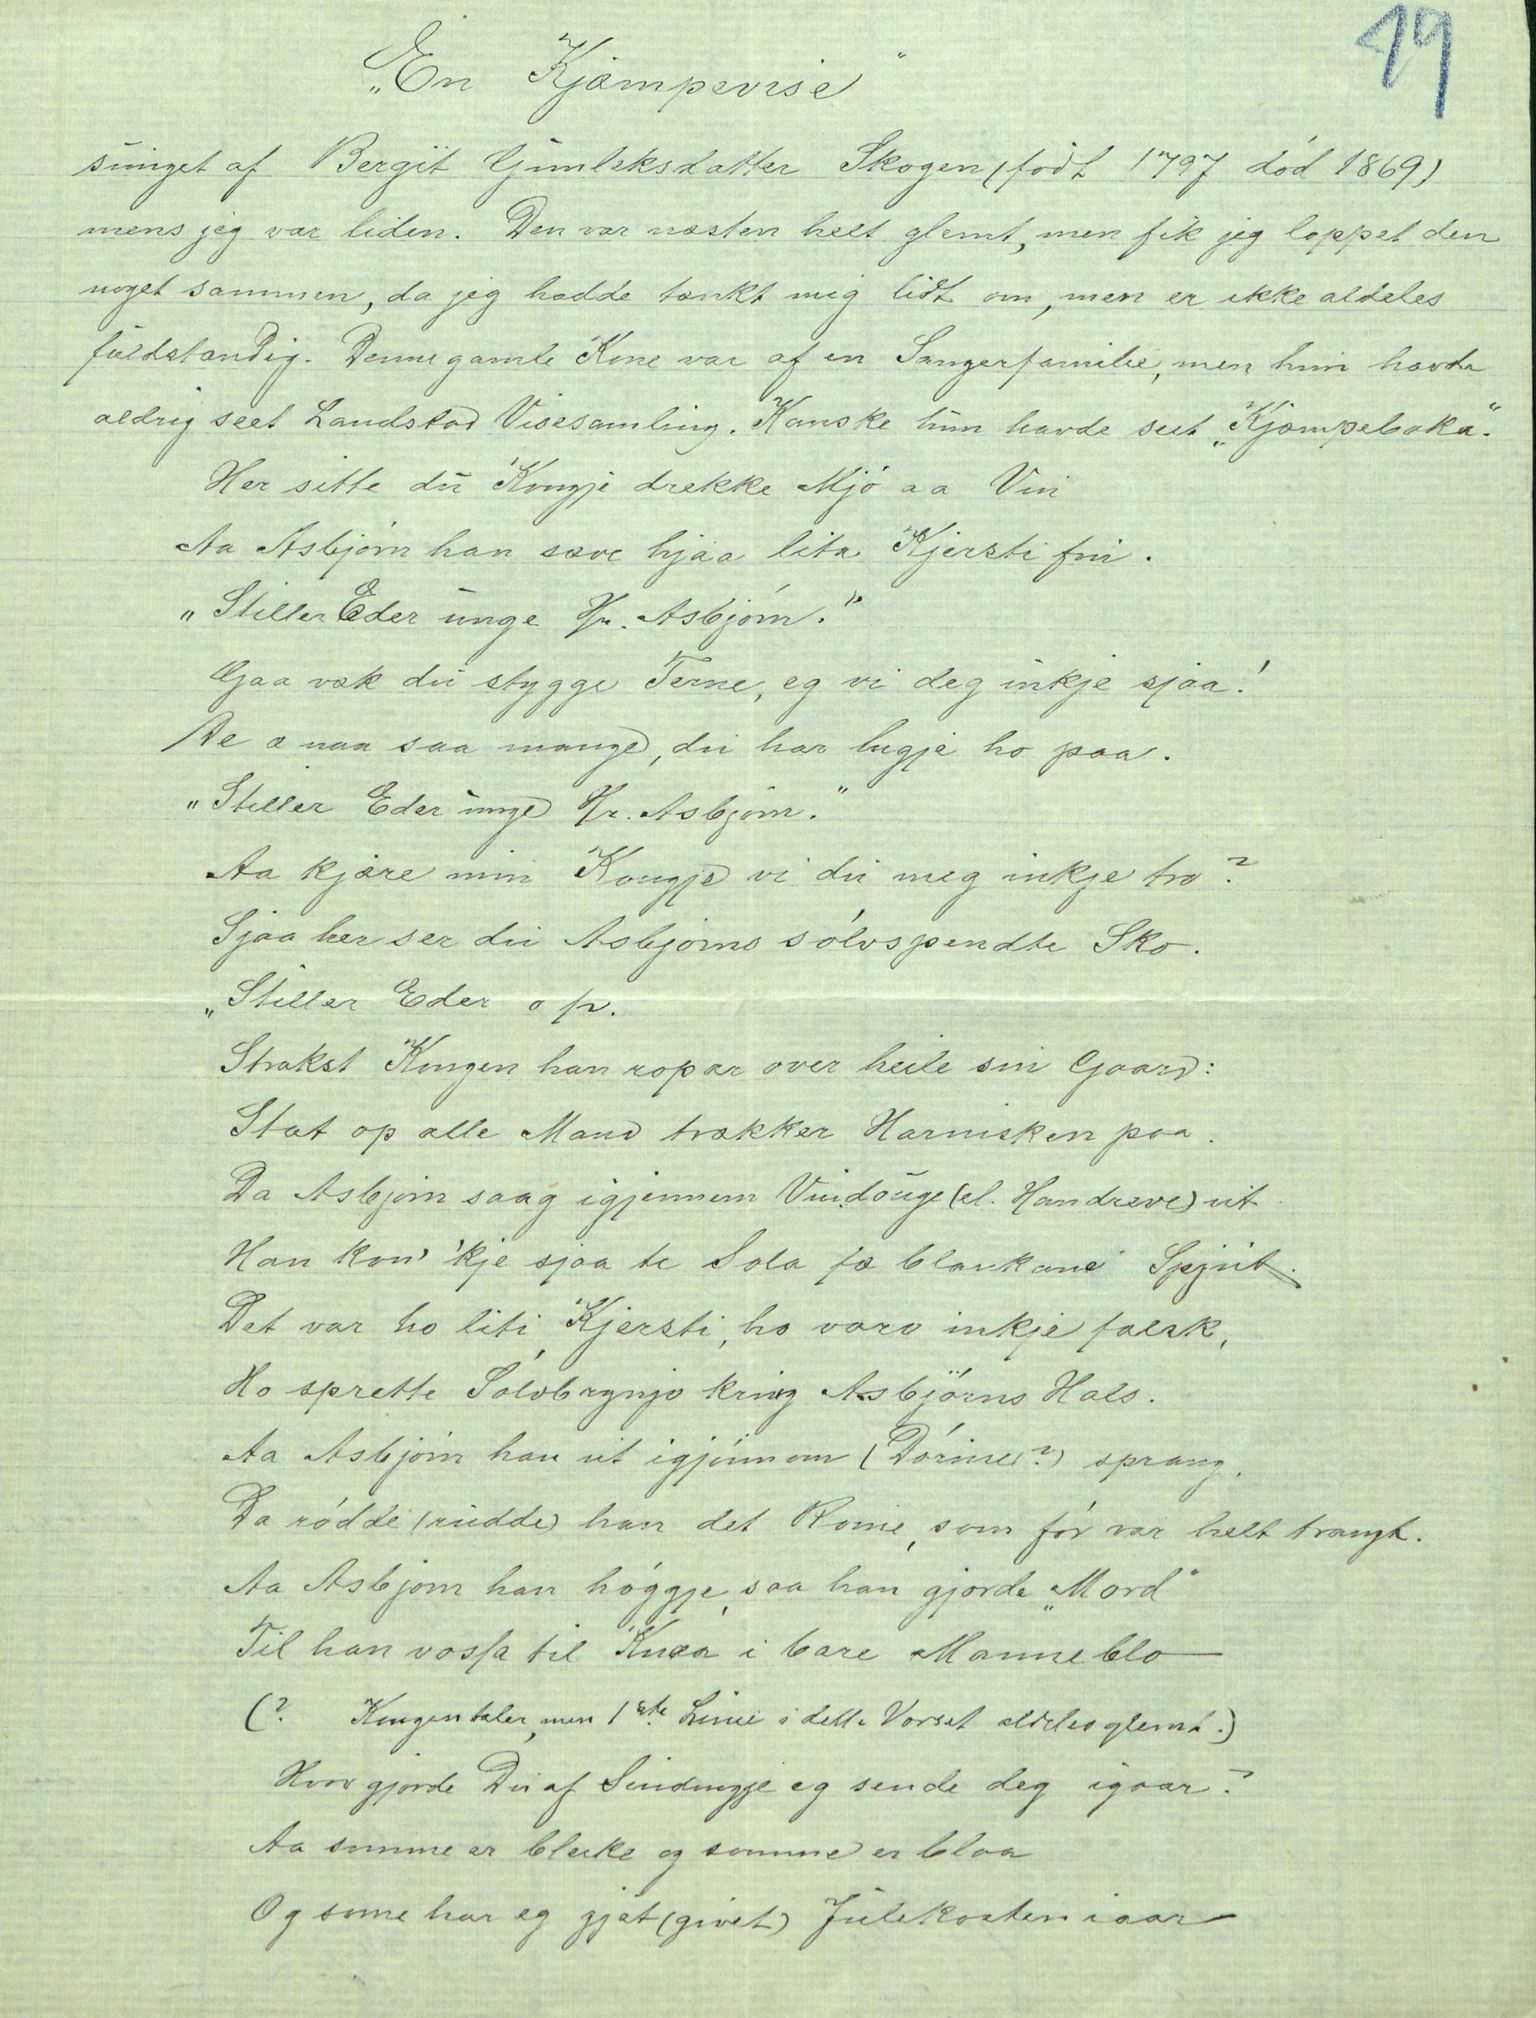 19
„En Kjæmpevise"
sunget af Bergit Gunleksdatter Skogen (født 1797 død 1869)
mens jeg var liden. Den var næsten helt glemt, men fik jeg loppet den
noget sammen, da jeg hadde tænkt mig lidt om, men er ikke aldeles
fuldstændig. Denne gamle Kone var af en Sangerfamilie, men hun havde
aldrig seet Landstad Visesamling. Kanske hun havde seet „Kjæmpeboka".
Her sitte du Kongje drekke Mjö aa Vin
Aa Asbjørn han sæve hjaa lita Kjersti fin.
„Stiller Eder unge Hr. Asbjörn."
Gaa væk du stygge Terne, eg vi deg inkje sjaa!
De æ naa saa mange, du har lugje ho paa.
„Stiller Eder unge Hr. Asbjörn."
Aa kjære min Kongje vi du meg inkje tro?
Sjaa her ser du Asbjørns sölvspendte Sko.
„Stiller Eder op.
Strakst Kongen han ropar over heile sin Gaard:
Stat op alle Mand trækker Harnisken paa.
Da Asbjörn saag igjennem Vindöuge (el. Handreve) ut
Han kon' 'kje sjaa te Sola fæ blankane Spjut.
Det var ho liti Kjersti, ho varo inkje falsk,
Ho sprette Sölvbrynjo kring Asbjörns Hals.
Aa Asbjörn han ut igjönnom (Dörine?) sprang,
Da rödde (rudde) han det Rome, som för var helt trangt.
Aa Asbjörn han höggje, saa han gjorde „Mord"
Til han vossa til Knæa i bare Manneblo
(? Kongen taler, men 1ste Linie i dette Vorset aldeles glemt.)
Hvor gjorde Du af Sindungje eg sende deg igaar?
Aa somme er bleike og somme er blaa
Og some har eg gjet (givet) Julekosten iaar